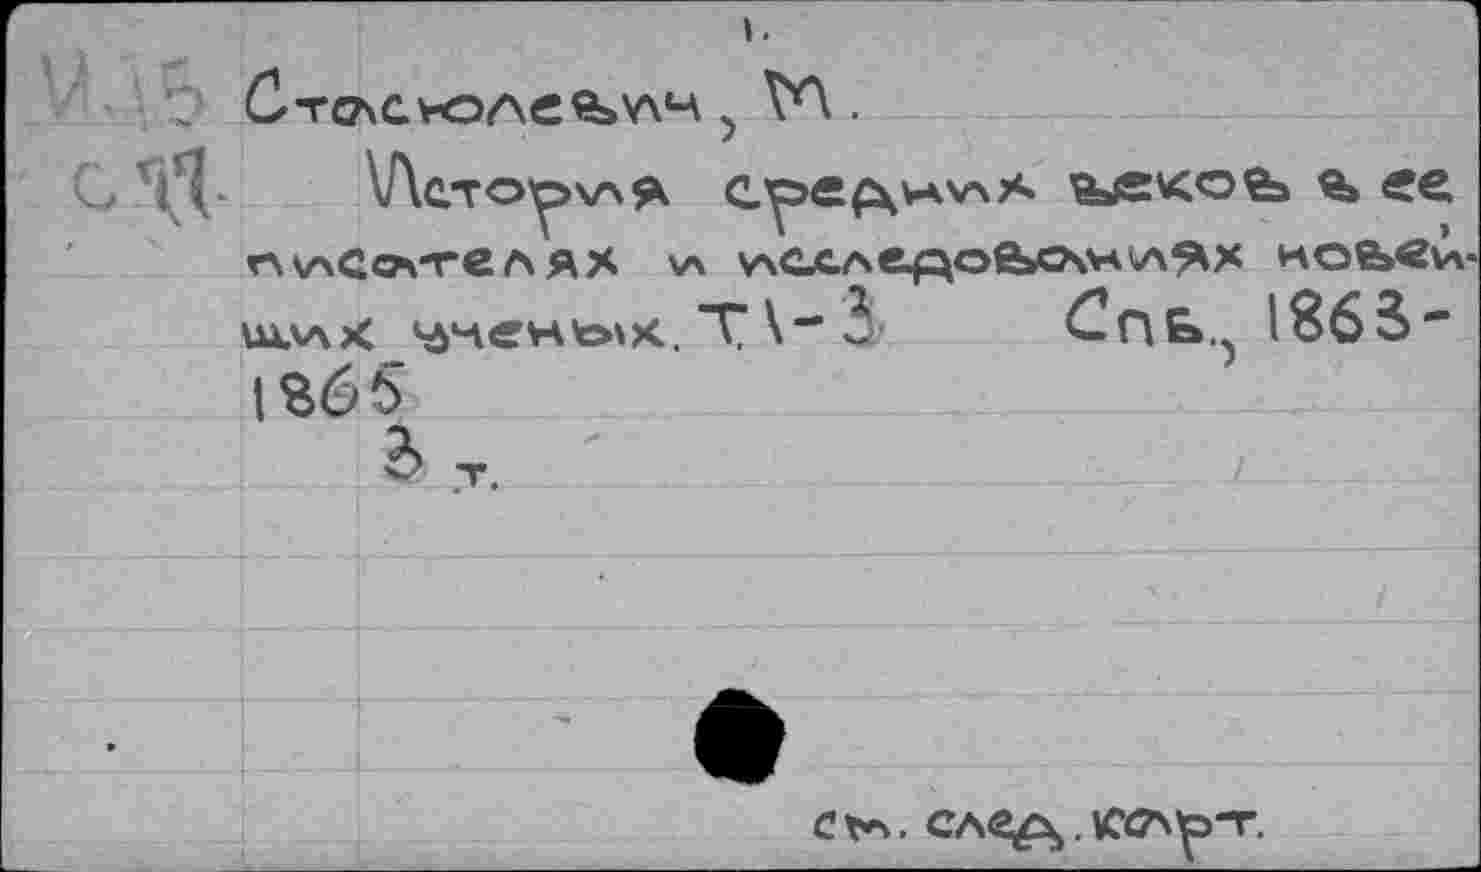 1.
Стасюлевич, М.
История средних веков в ее
писателях и исследованиях новей-
ших ученых. Т.1-3 Спб., 1863-
1865
3 т.
См. след. карт.